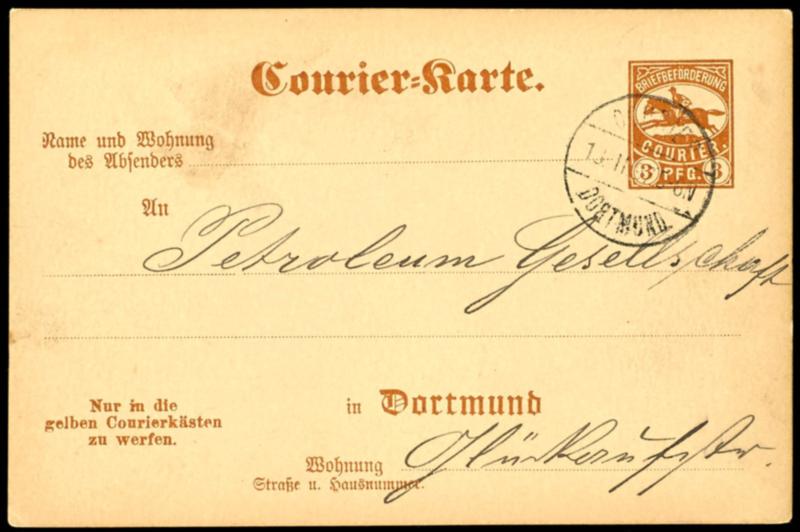 Courier-Karte.
BRIEFBEFÖRDERUNG
COURIER.
3 PFG. 3
DORTMUND.
Name und Wohnung
des Absenders
An
Petroleum Gesellschaft
Nur in die
gelben Courierkästen
zu werfen.
in Dortmund
Wohnung
Straße u. Hausnummer.
Glückaufstr.